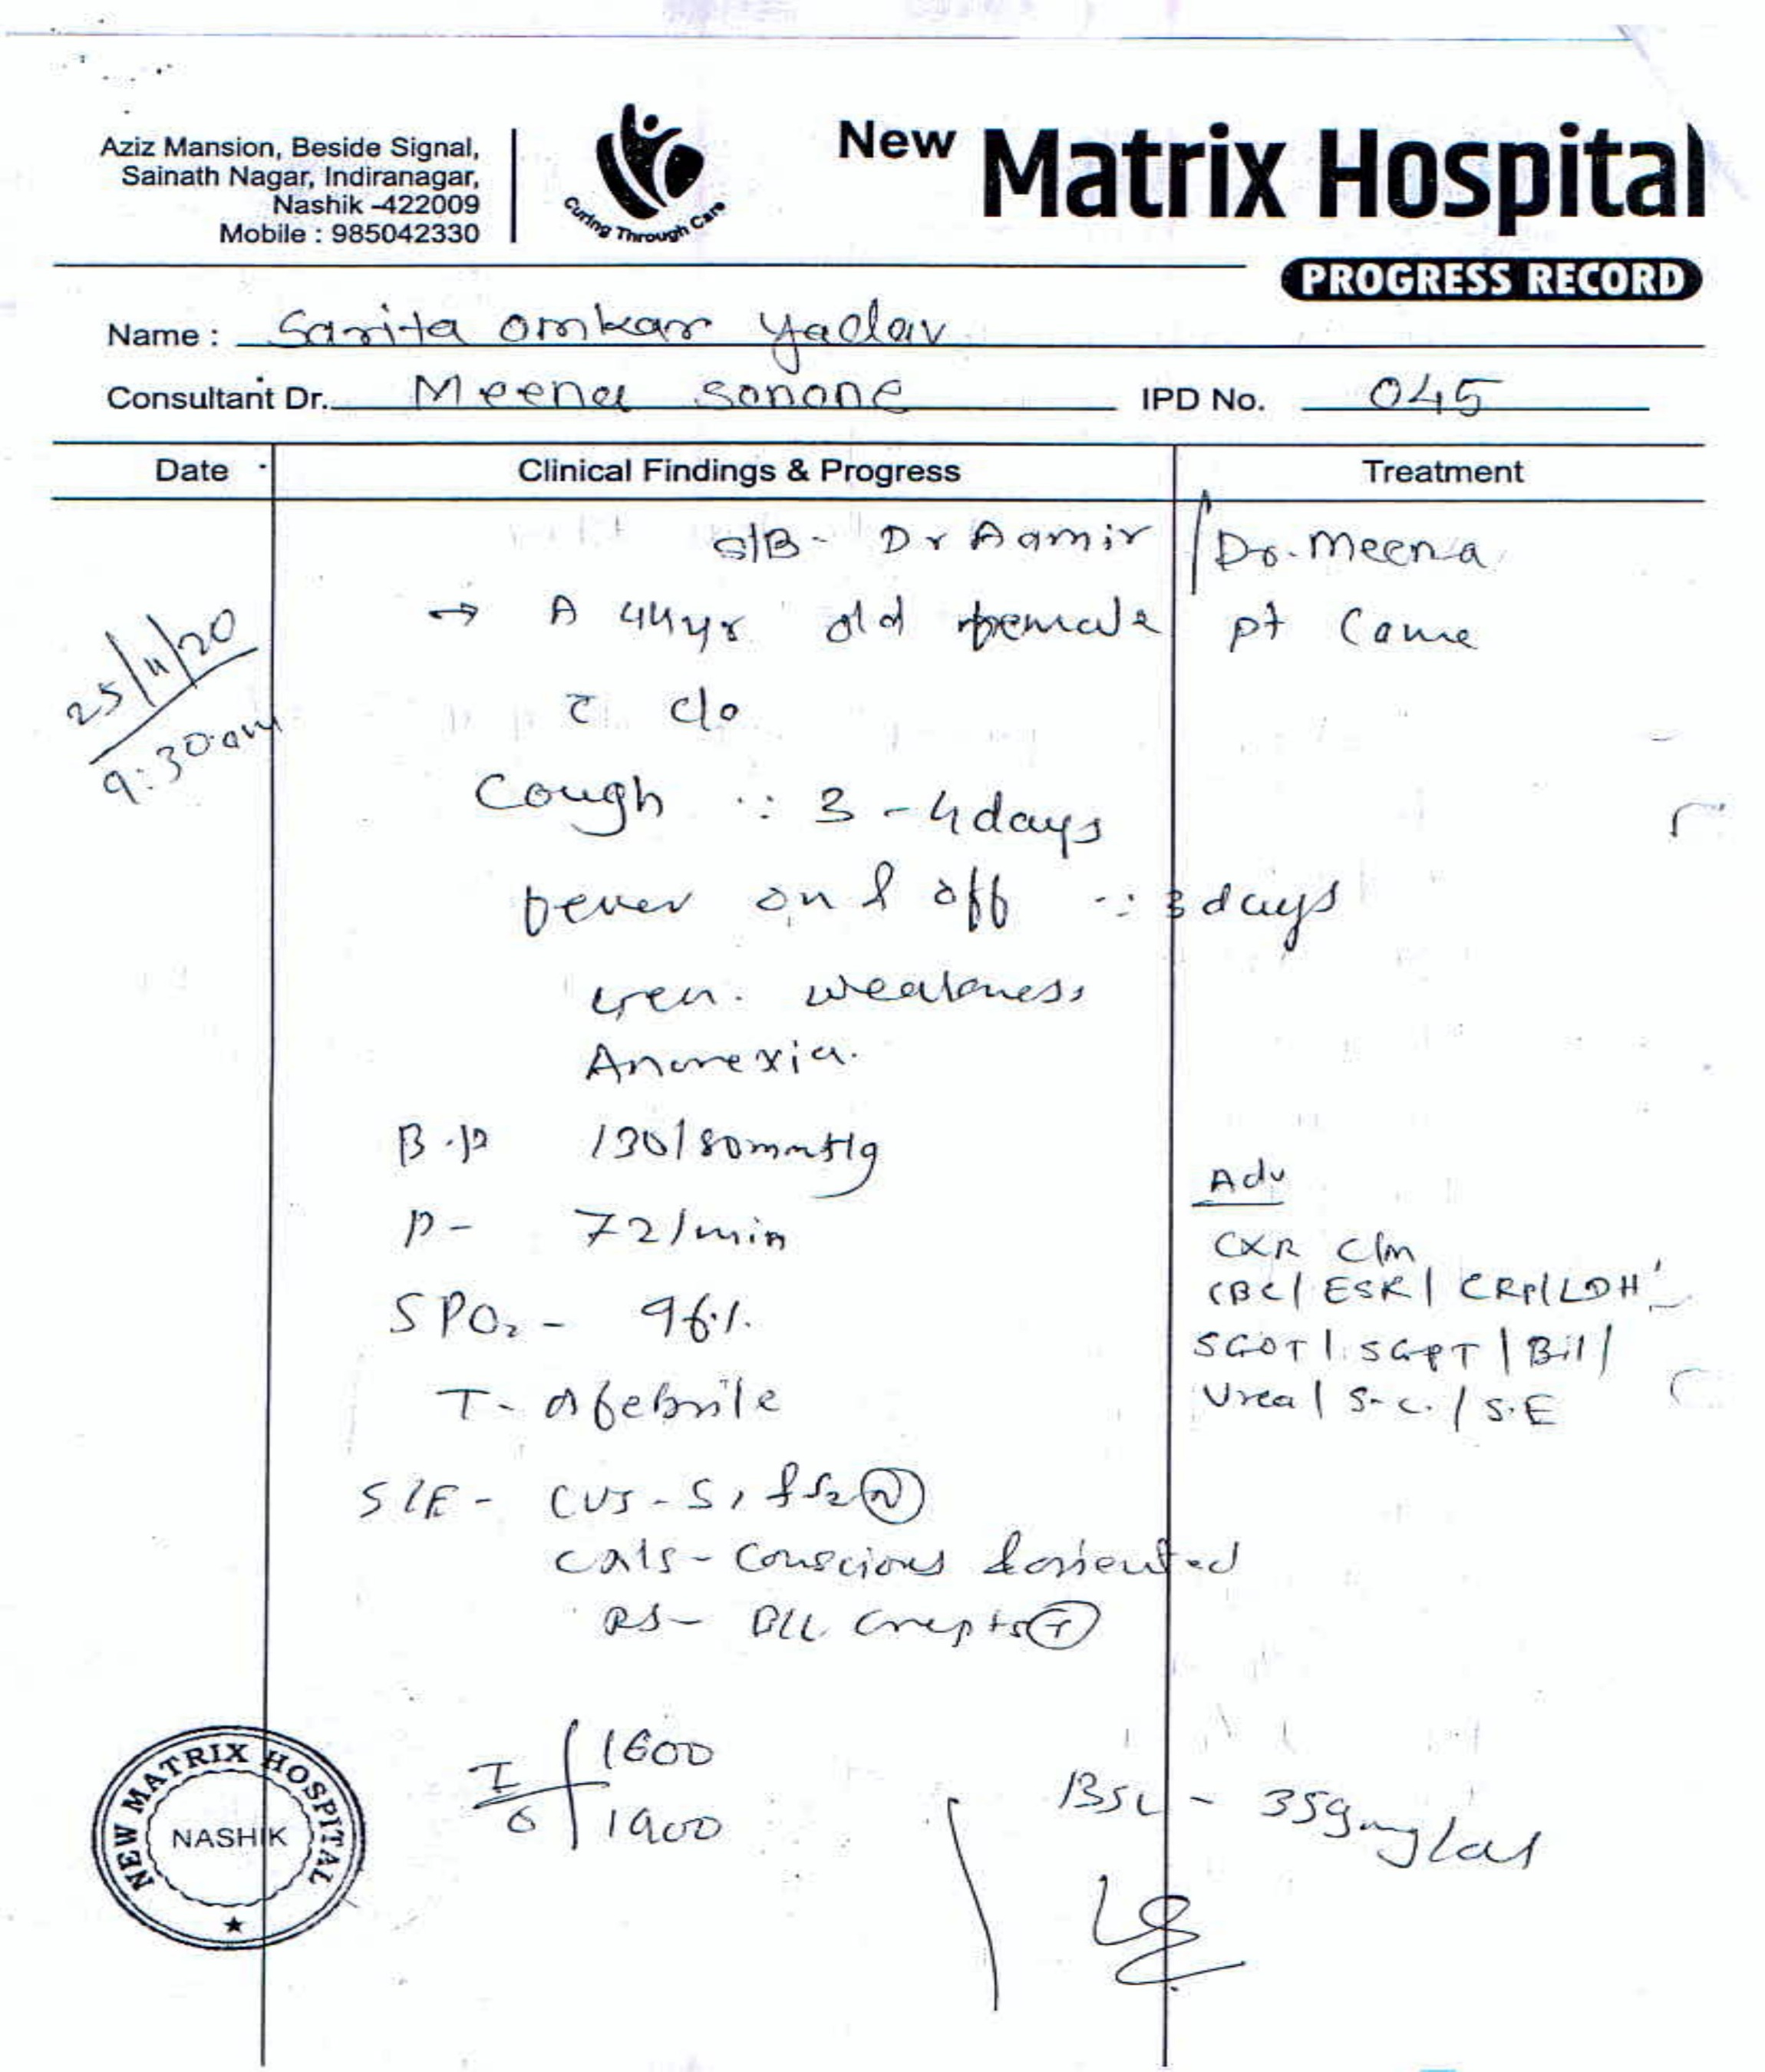 Aziz Mansion, Beside Signal,
Sainath Nagar, Indiranagar,
Nashik -422009
Mobile : 985042330
Curing Through Care
New Matrix Hospital
PROGRESS RECORD
Name : Sarita omkar yadav
Consultant Dr. Meena sonone IPD No. 045
Date Clinical Findings & Progress Treatment
S/B - Dr Aamir / Dr. Meena
25/11/20
9:30 am
→ A 44yr old female pt came
c̄ c/o
Cough ∵ 3 - 4 days
fever on & off ∵ 3 days
Gen. weakness
Anorexia.
B.P 130/80mmHg
P - 72/min
SPO₂ - 96%
T - Afebrile
Adv
CXR
CBC/ ESR/ CRP/LDH
SGOT/ SGPT/ Bil/
Urea/ S.c./ S.E
S/E - CVS - S1 & S2 (N)
CNS - Conscious & oriented
RS - B/L Crepts (+)
I/O 1600
1900
BSL - 359 mg/dl
NEW MATRIX HOSPITAL
NASHIK